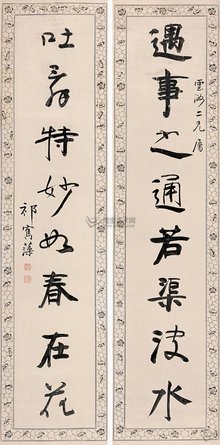 遇事必通若渠決水
雲湖二兄屬
吐辭特妙如春在花
祁寯藻